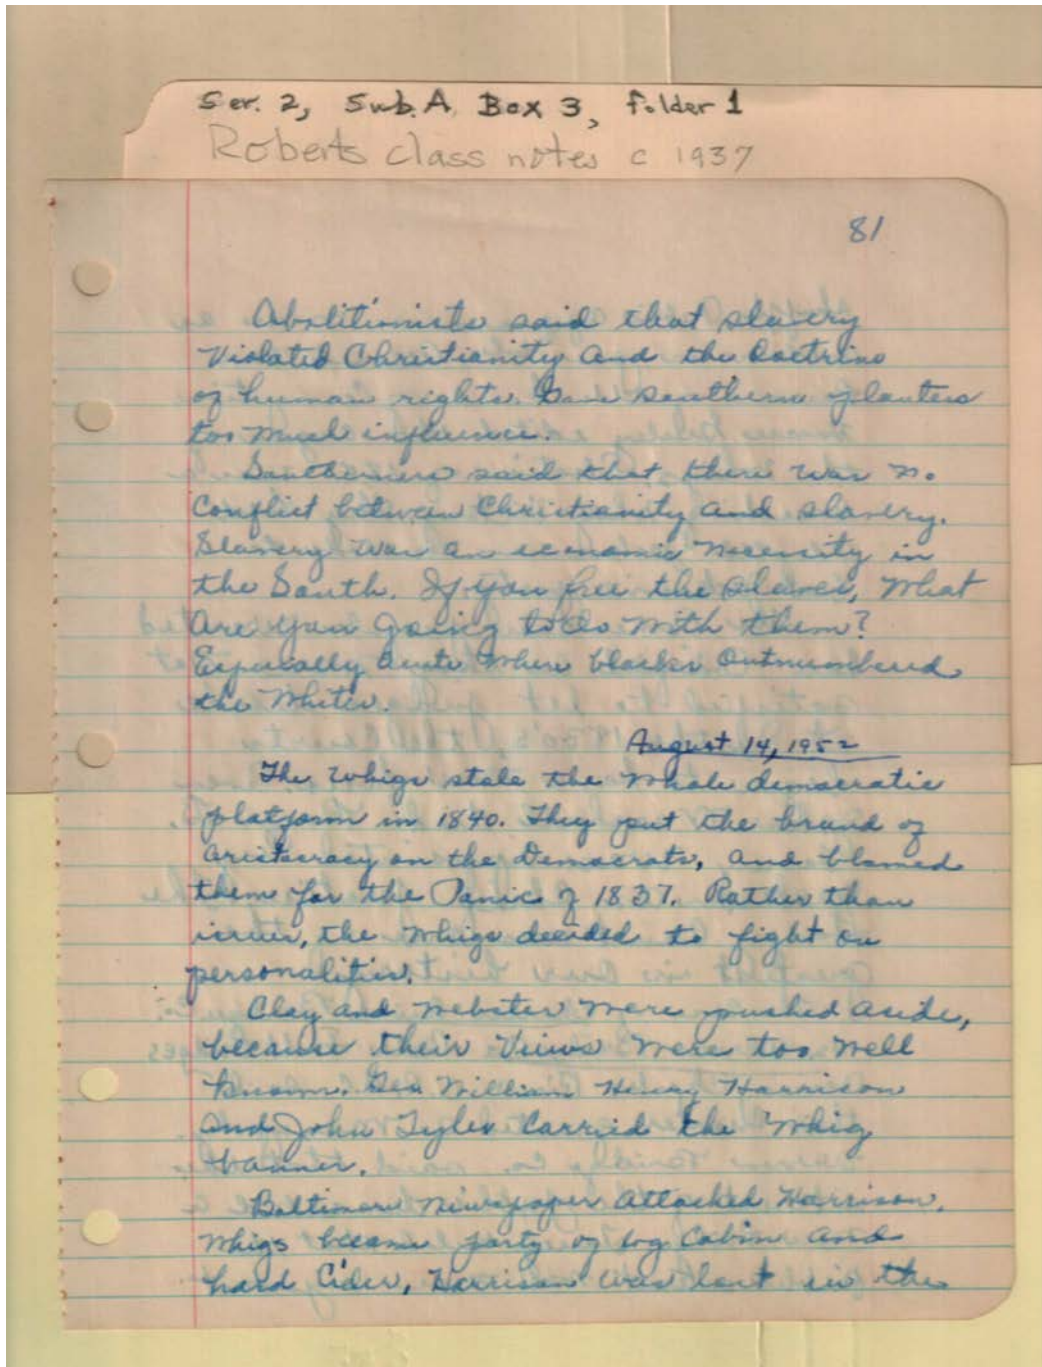 Ser. 2, Sub. A, Box 3, folder 1
Roberts class notes c 1937
81
Abolitionists said that slavery
violated Christianity and the doctrine
of human rights. Gave southern planters
too much influence.
Southerners said that there was no
conflict between Christianity and slavery.
Slavery was an economic necessity in
the South. If you free the slaves, what
are you going to do with them?
Especially acute where blacks outnumbered
the whites.
August 14, 1952
The Whigs stole the whole democratic
platform in 1840. They put the brand of
aristocracy on the Democrats, and blamed
them for the Panic of 1837. Rather than
issues, the Whigs decided to fight on
personalities.
Clay and Webster were pushed aside,
because their views were too well
known. Gen William Henry Harrison
and John Tyler carried the Whig
banner.
Baltimore Newspaper attacked Harrison.
Whigs became party of log cabin and
hard cider, Harrison was lost in the